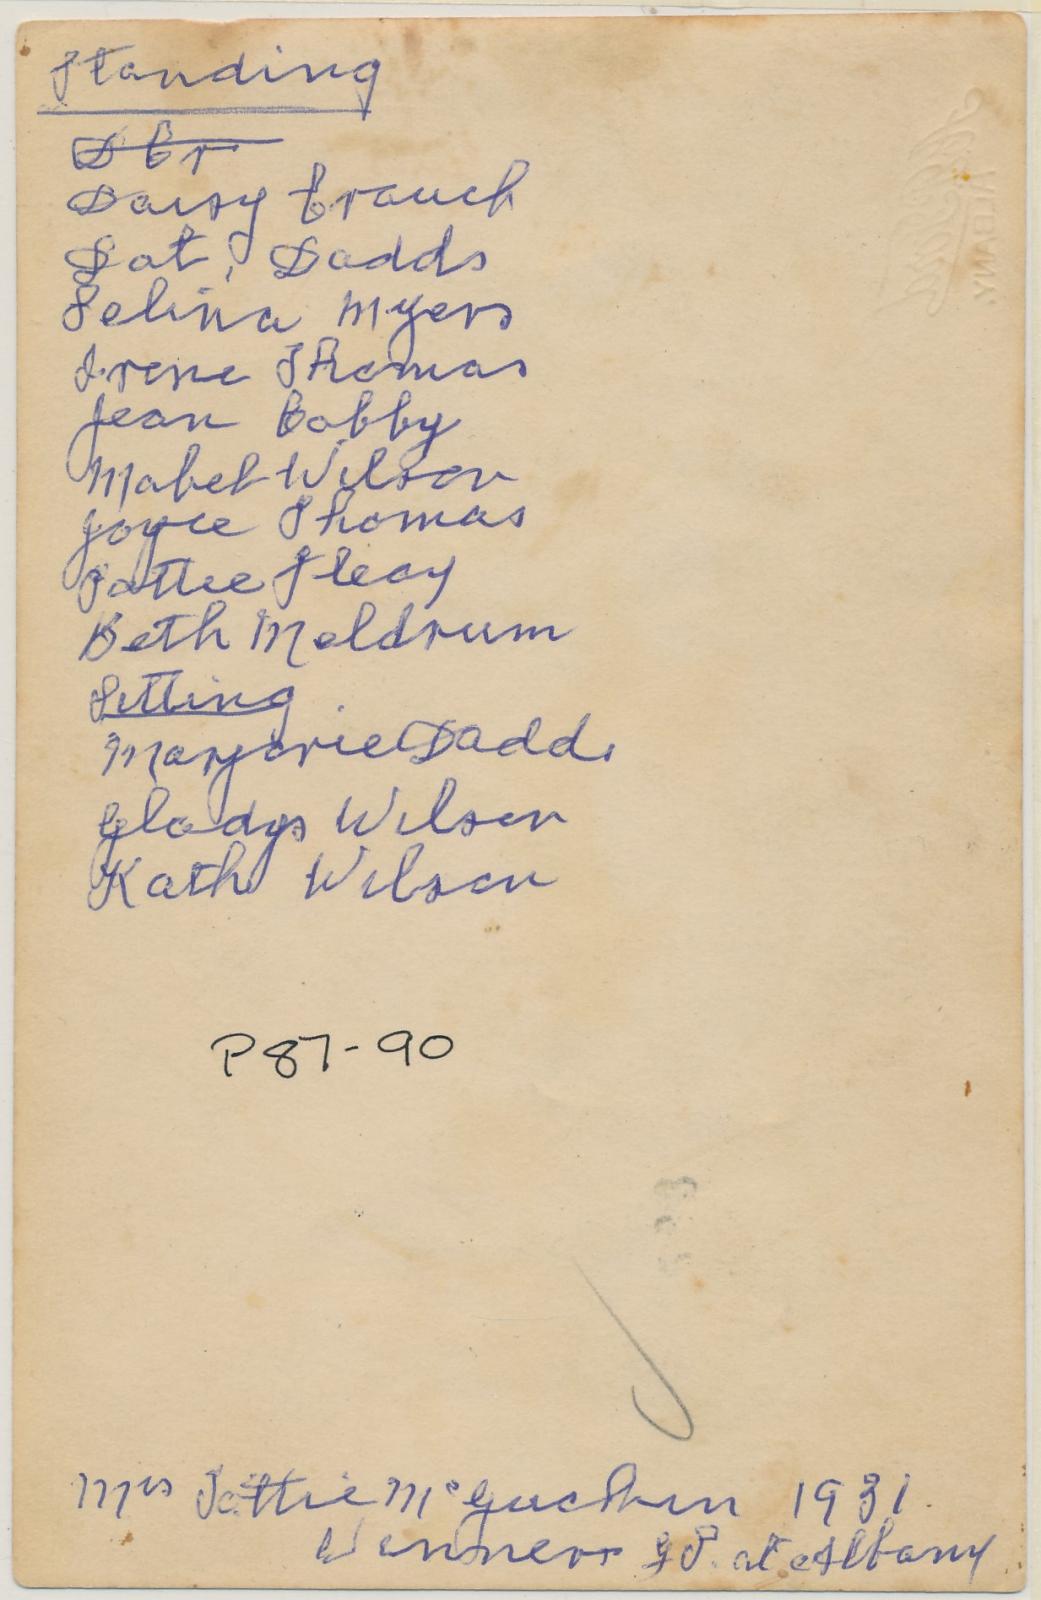 Standing
Daisy Crouch
Dot, Dadds
Selina Myers
Irene Thomas
Jean Bobby
Mabel Wilson
Joyce Thomas
Tottie Fleay
Beth Meldrum
Sitting
Marjorie Dadds
Gladys Wilson
Kath Wilson
P87-90
Mrs Tottie McGuckin 1931
Winners G.S. at Albany
ALBANY.